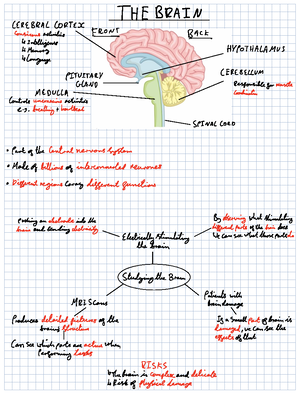 THE BRAIN
CEREBRAL CORTEX
Conscious activities
↳ Intelligence
↳ Memory
↳ Language
FRONT
BACK
HYPOTHALAMUS
PITUITARY
GLAND
CEREBELLUM
Responsible for muscle
MEDULLA
Controls unconscious activities
e.g. breathing + heartbeat
SPINAL CORD
• Part of the Central nervous System
• Made of billions of interconnected neurones
• Different regions carry different functions
Pushing an electrode into the
brain and sending electricity
Electrically Stimulating
the brain
By observing what stimulating
different parts of the brain does
We can see what those parts do
Studying the Brain
MRI Scans
Produces detailed pictures of the
brains Structure
Can see which parts are active when
performing tasks
Patients with
brain damage
If a small part of brain is
damaged, we can see the
effects of that
RISKS
↳ the brain is complex and delicate
↳ Risk of Physical damage